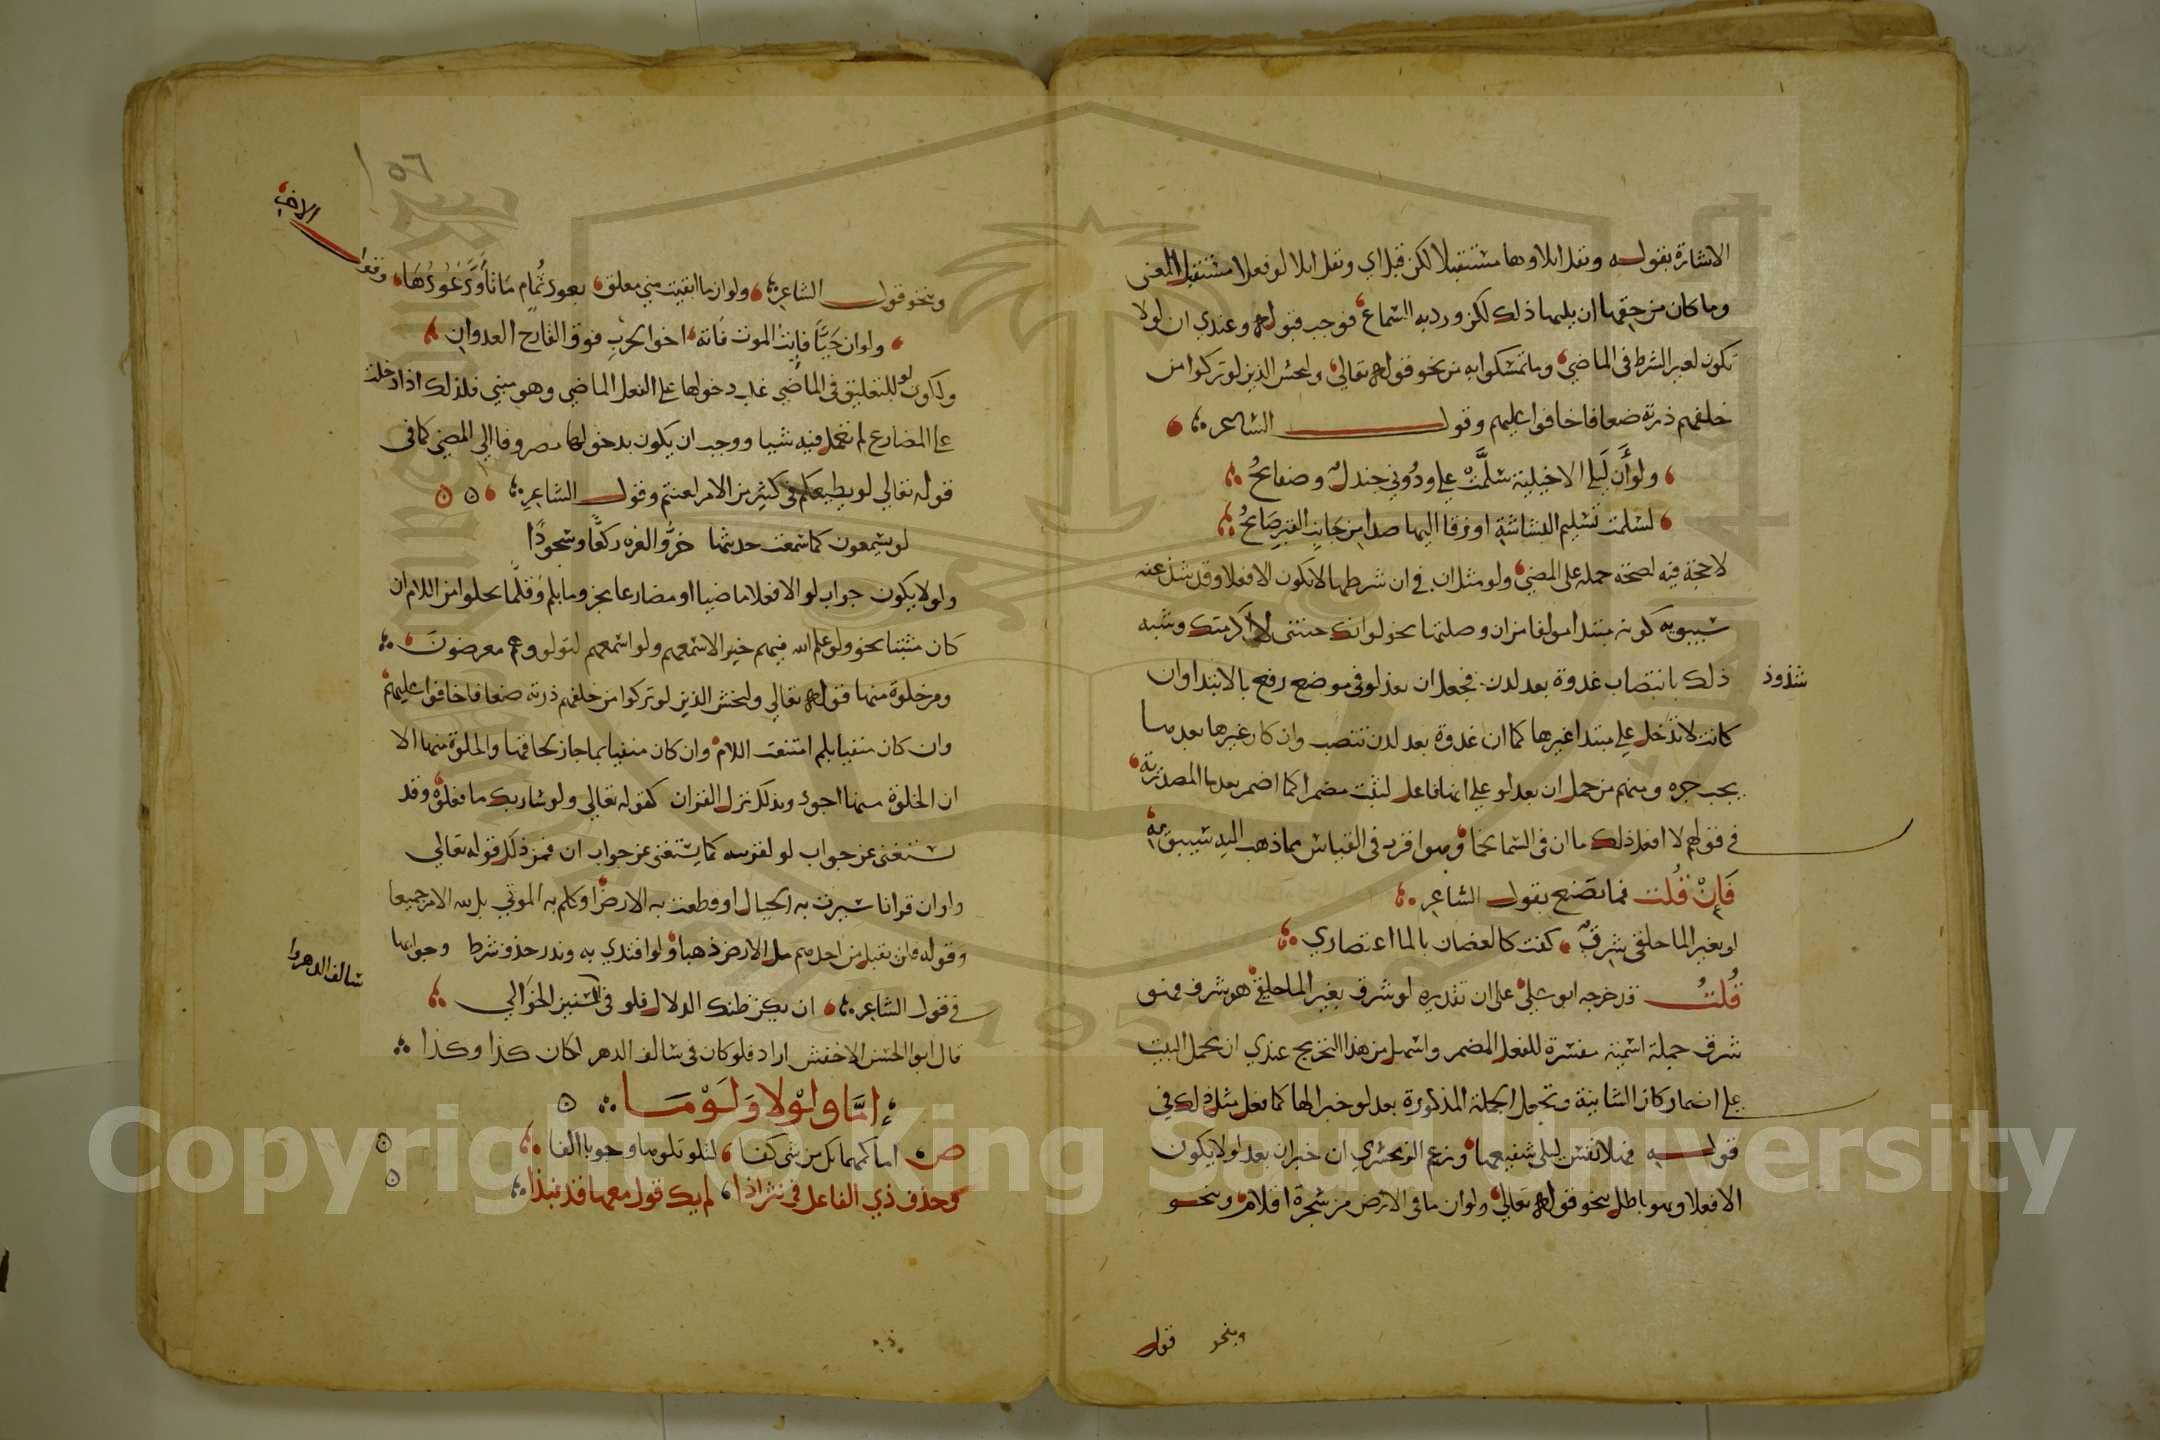 الاشارة بقوله ويقل ايلاوها مستقبلا لكن قبل اي ويقل ايلا لو فعلا مستقبل المعنى
وما كان من حقها ان يليها ذلك لكن ورد به السماع فوجب قبوله وعندي ان لو لا
تكون لغير الشرط في الماضي وما تمسكوا به من نحو قوله تعالي وليخش الذين لو تركوا من
خلفهم ذرية ضعافا خافوا عليهم وقول الشاعر
ولو أن ليلي الاخيلية سلمت علي ودوني جندل وصفايح
لسلمت تسليم البشاشة او زقا اليها صدا من جانب القبر صايح
لا حجة فيه لصحة حمله على المضي ولو مثل ان في ان شرطها لا يكون الا فعلا وقد شذ عنه
سيبويه كونه مبتدا مولفا من ان وصلتها نحو لو انك جئتني لاكرمتك وشبه
شذوذ
ذلك بانتصاب غدوة بعد لدن فجعل ان بعد لو في موضع رفع بالابتدا وان
كانت لا تدخل علي مبتدا غيرها كما ان غدوة بعد لدن تنتصب وان كان غيرها بعدها
يجب جره ومنهم من حمل ان بعد لو علي انها فاعل لثبت مضمرا كما اضمر بعد ما المصدرية
في قولهم لا افعل ذلك ما ان في السما نجما وهو اقرب في القياس مما ذهب اليه سيبويه
فإن قلت فما تصنع بقول الشاعر
لو بغير الما حلقي شرق كنت كالغصان بالما اعتصاري
قلت قد خرجه ابو علي على ان تقديره لو شرق بغير الما حلقي هو شرق فهو
شرق جملة اسمية مفسرة للفعل المضمر واسهل من هذا التخريج عندي ان يحمل البيت
علي اضمار كان الشانية وتجعل الجملة المذكورة بعد لو خبرا لها كما فعل مثل ذلك في
قوله فهلا نفس ليلي شفيعها وزعم الزمخشري ان خبر ان بعد لو لا يكون
الا فعلا وهو باطل بنحو قوله تعالي ولو ان ما في الارض من شجرة اقلام وبنحو
وبنحو قول
٥٦
وبنحو قول الشاعر ولو ان ما ابقيت مني معلق بعود ثمام ما تأود عودها وقول
الاخر
ولو ان حيا فايت الموت فاته اخو الحرب فوق القارح العدوان
ولكون لو للتعليق في الماضي غلب دخولها علي الفعل الماضي وهو مبني فلذلك اذا دخلت
علي المضارع لم تعمل فيه شيا ووجب ان يكون بدخولها مصروفا الي المضي كما في
قوله تعالي لو يطيعكم في كثير من الامر لعنتم وقول الشاعر
لو يسمعون كما سمعت حديثها خروا لعزه ركعا وسجودا
ولو لا يكون جواب لو الا فعلا ماضيا او مضارعا مجزوما بلم وقلما يخلوا من اللام ان
كان مثبتا نحو ولو علم الله فيهم خيرا لاسمعهم ولو اسمعهم لتولوا وهم معرضون
ومن خلوه منها قوله تعالي وليخش الذين لو تركوا من خلفهم ذرية ضعافا خافوا عليهم
وان كان منفيا بلم امتنعت اللام وان كان منفيا بما جاز لحاقها والخلوة منها الا
ان الخلوة منها اجود وبذلك نزل القران كقوله تعالي ولو شا ربك ما فعلوه وقد
يستغنى عن جواب لو لقرينه كما يستغنى عن جواب ان فمن ذلك قوله تعالي
ولو ان قرانا سيرت به الجبال او قطعت به الارض او كلم به الموتي بل لله الامر جميعا
وقوله فلن يقبل من احدهم مل الارض ذهبا ولو افتدي به وندر حذف شرط وجوابها
في قول الشاعر ان يكن طبك الدلال فلو في السنين الخوالي
سالف الدهر وا
قال ابو الحسن الاخفش اراد فلو كان في سالف الدهر لكان كذا وكذا
إما ولولا ولوما
ص اما كمهما يك من شي كفا لتلو تلوها وجوبا الفا
وحذف ذي الفا قل في نثر اذا لم يك قول معها قد نبذا
Copyright © King Saud University
1957